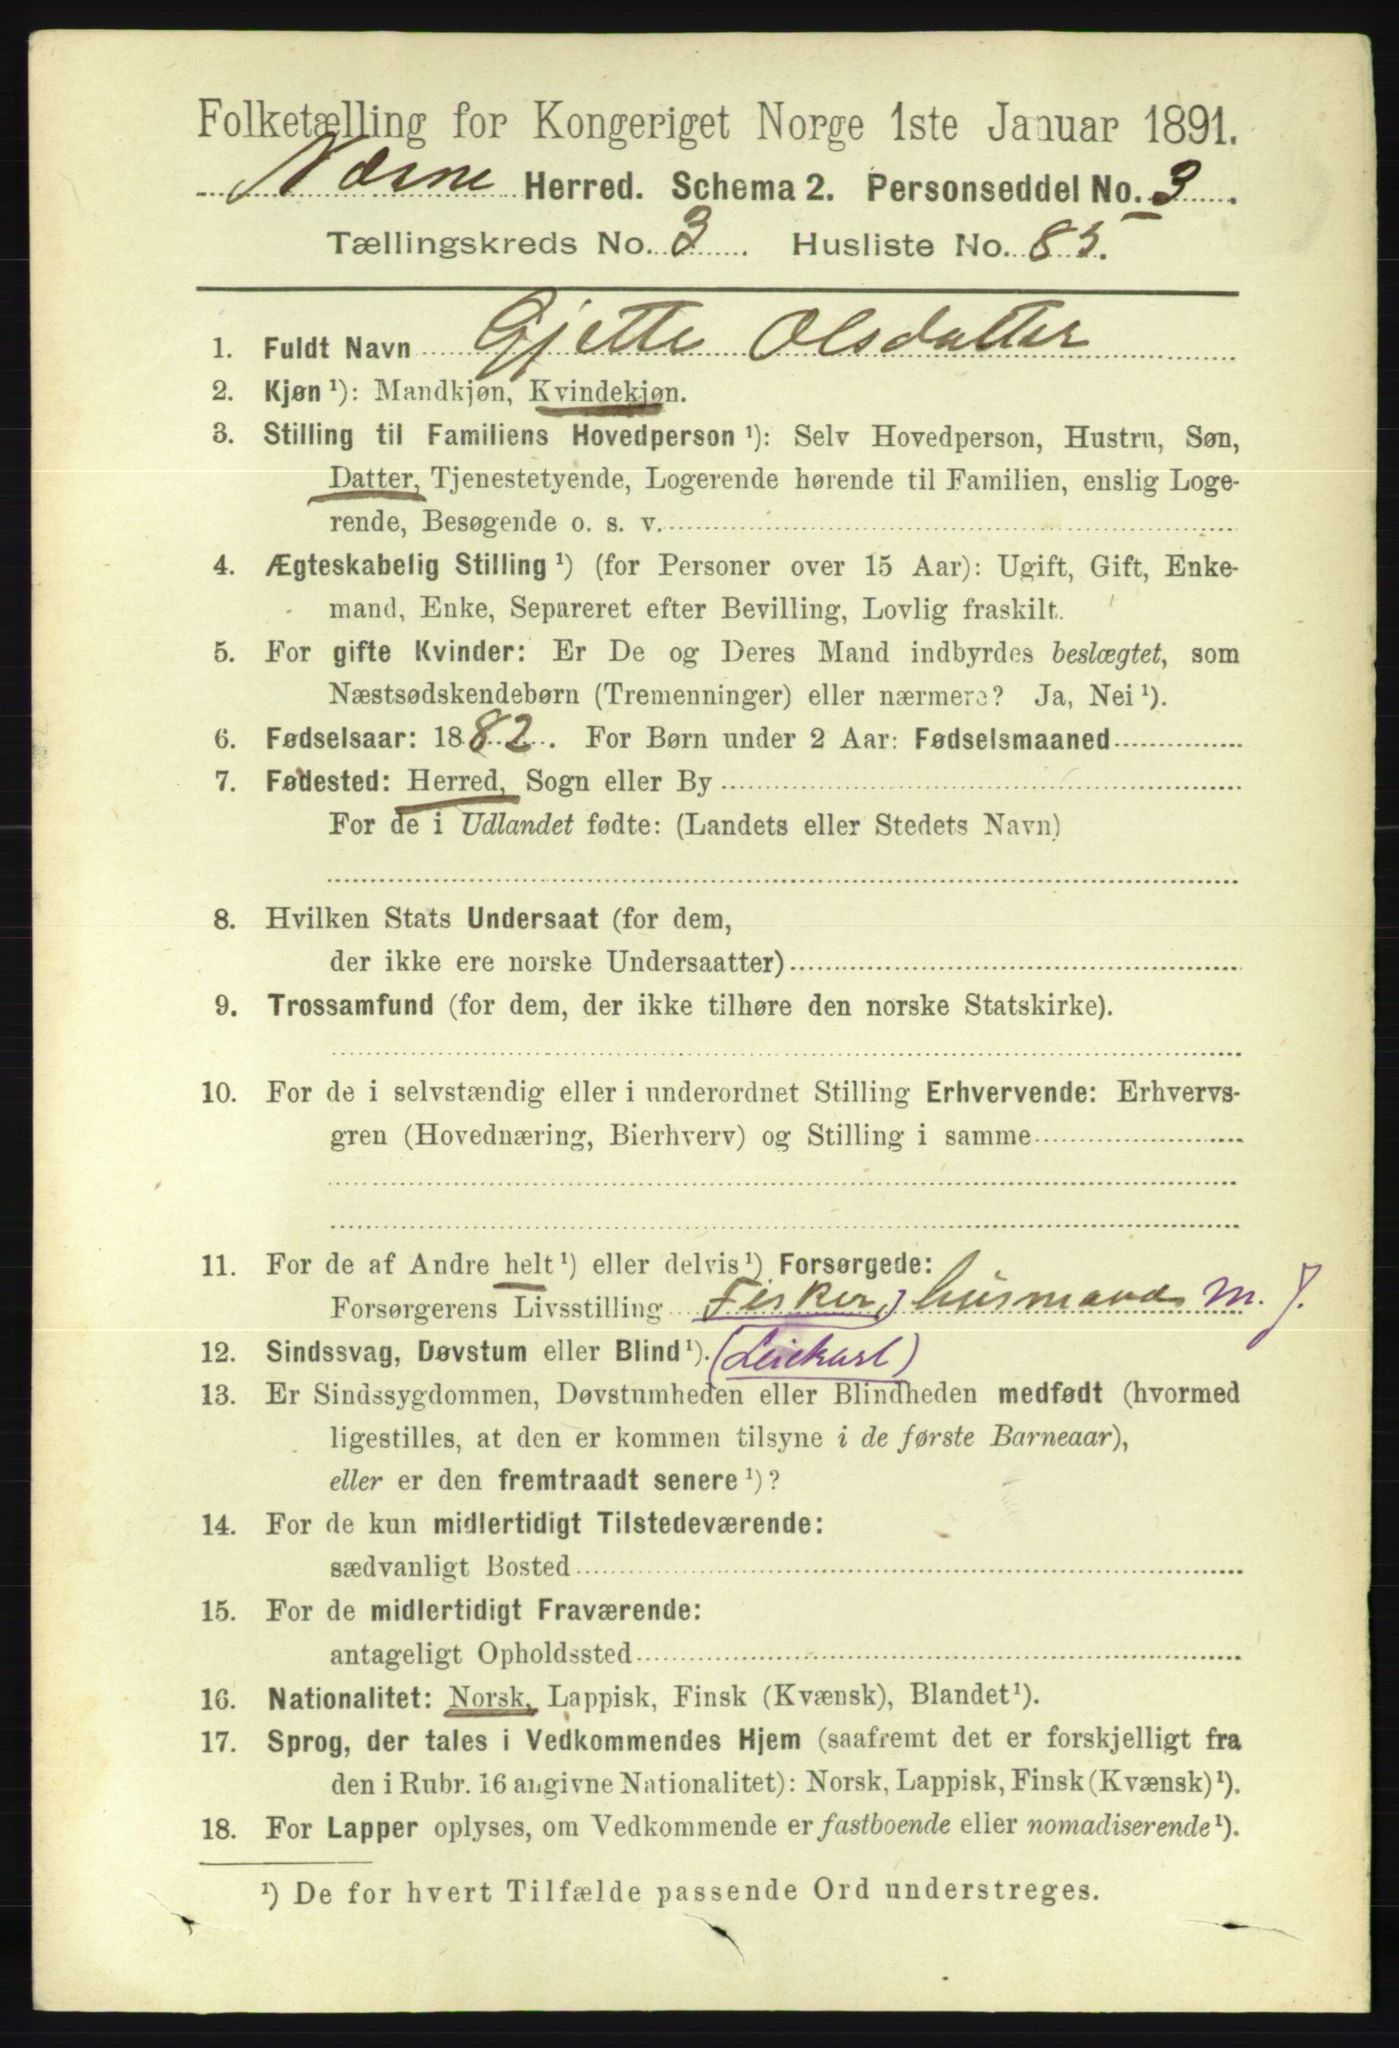 Folketælling for Kongeriget Norge 1ste Januar 1891.
Nærne Herred. Schema 2. Personseddel No. 3
Tællingskreds No. 3 Husliste No. 85.
1. Fuldt Navn Gjette Olsdatter
2. Kjøn ¹): Mandkjøn, Kvindekjøn.
3. Stilling til Familiens Hovedperson ¹): Selv Hovedperson, Hustru, Søn,
Datter, Tjenestetyende, Logerende hørende til Familien, enslig Loge-
rende, Besøgende o. s. v.
4. Ægteskabelig Stilling ¹) (for Personer over 15 Aar): Ugift, Gift, Enke-
mand, Enke, Separeret efter Bevilling, Lovlig fraskilt.
5. For gifte Kvinder: Er De og Deres Mand indbyrdes beslægtet, som
Næstsødskendebørn (Tremenninger) eller nærmere? Ja, Nei ¹).
6. Fødselsaar: 1882. For Børn under 2 Aar: Fødselsmaaned
7. Fødested: Herred, Sogn eller By
For de i Udlandet fødte: (Landets eller Stedets Navn)
8. Hvilken Stats Undersaat (for dem,
der ikke ere norske Undersaatter)
9. Trossamfund (for dem, der ikke tilhøre den norske Statskirke).
10. For de i selvstændig eller i underordnet Stilling Erhvervende: Erhvervs-
gren (Hovednæring, Bierhverv) og Stilling i samme
11. For de af Andre helt ¹) eller delvis ¹) Forsørgede:
Forsørgerens Livsstilling Fisker, husmand m. J.
12. Sindssvag, Døvstum eller Blind ¹).
13. Er Sindssygdommen, Døvstumheden eller Blindheden medfødt (hvormed
ligestilles, at den er kommen tilsyne i de første Barneaar),
eller er den fremtraadt senere ¹)?
14. For de kun midlertidigt Tilstedeværende:
sædvanligt Bosted
15. For de midlertidigt Fraværende:
antageligt Opholdssted
16. Nationalitet: Norsk, Lappisk, Finsk (Kvænsk), Blandet ¹).
17. Sprog, der tales i Vedkommendes Hjem (saafremt det er forskjelligt fra
den i Rubr. 16 angivne Nationalitet): Norsk, Lappisk, Finsk (Kvænsk) ¹).
18. For Lapper oplyses, om Vedkommende er fastboende eller nomadiserende ¹).
¹) De for hvert Tilfælde passende Ord understreges.